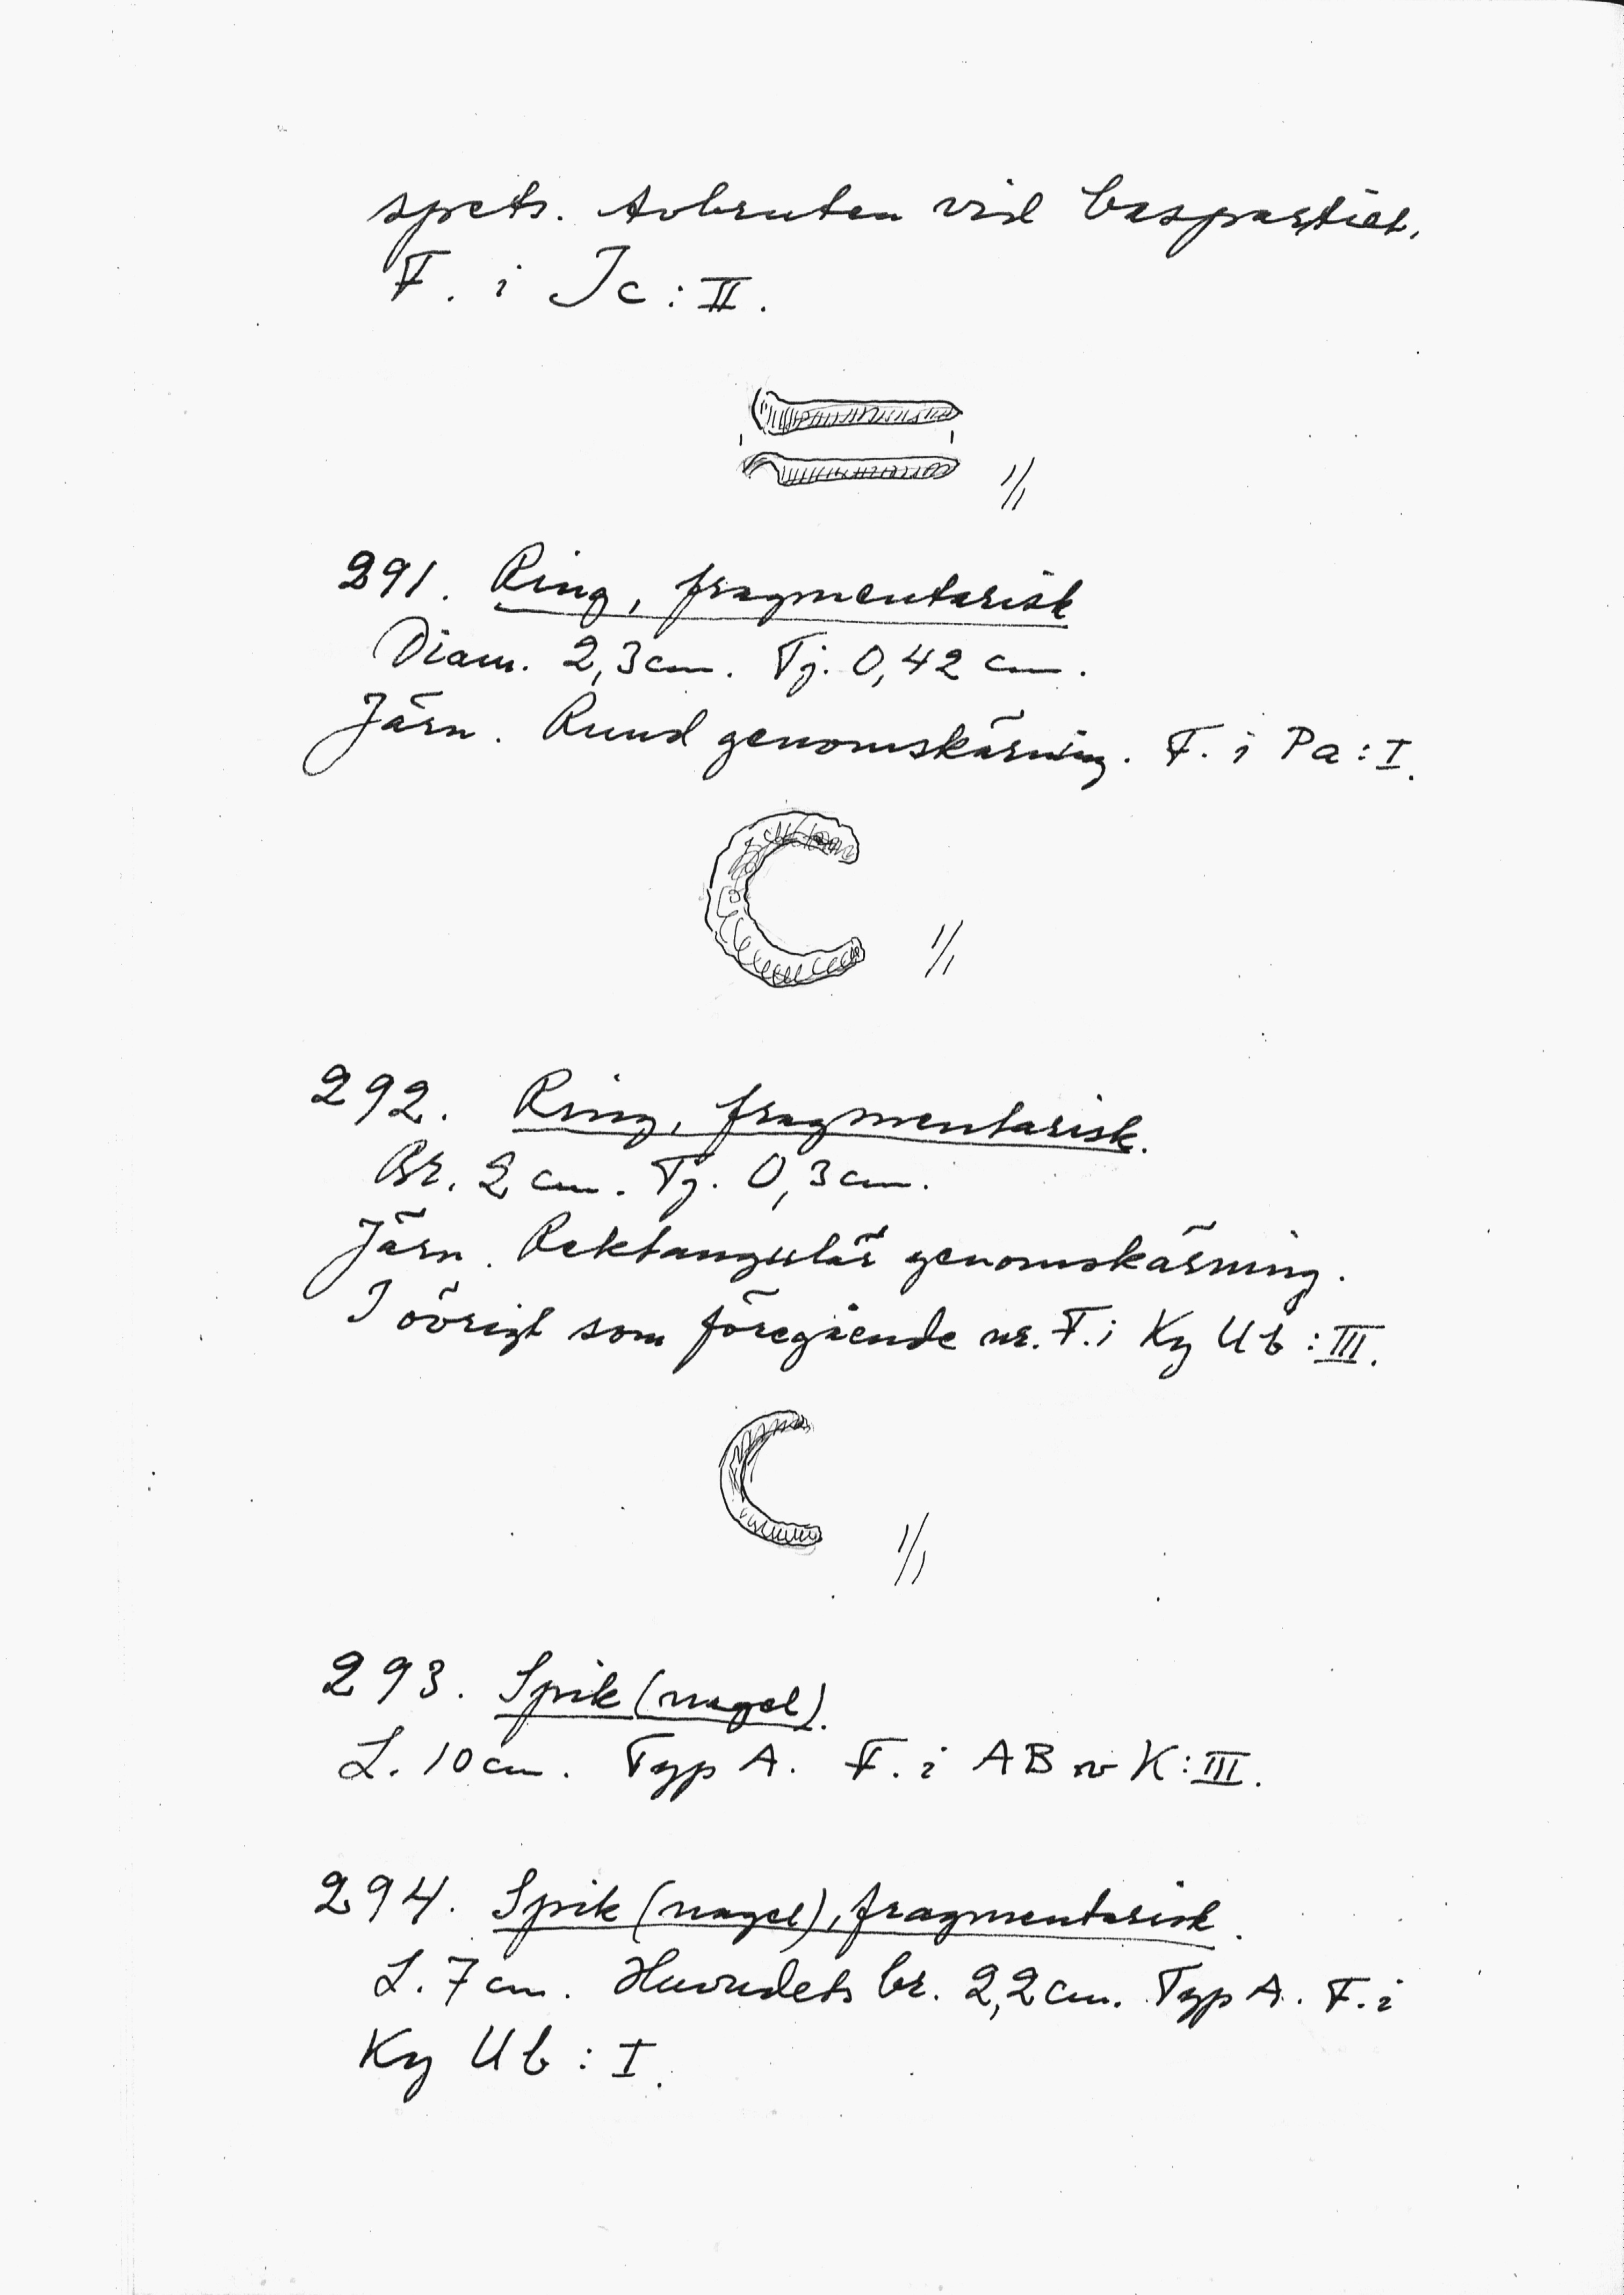 spets. Avbruten vid baspartiet.
F. i Jc : II.
1/1
291. Ring, fragmentarisk
Diam. 2,3 cm. Tj. 0,42 cm.
Järn. Rund genomskärning. F. i Pa : I.
1/1
292. Ring, fragmentarisk.
Br. 2 cm. Tj. 0,3 cm.
Järn. Rektangulär genomskärning.
I övrigt som föregående nr. F. i Ky Ub : III.
1/1
293. Spik (nagel).
L. 10 cm. Typ A. F. i AB v K : III.
294. Spik (nagel), fragmentarisk.
L. 7 cm. Huvudets br. 2,2 cm. Typ A. F. i
Ky Ub : I.